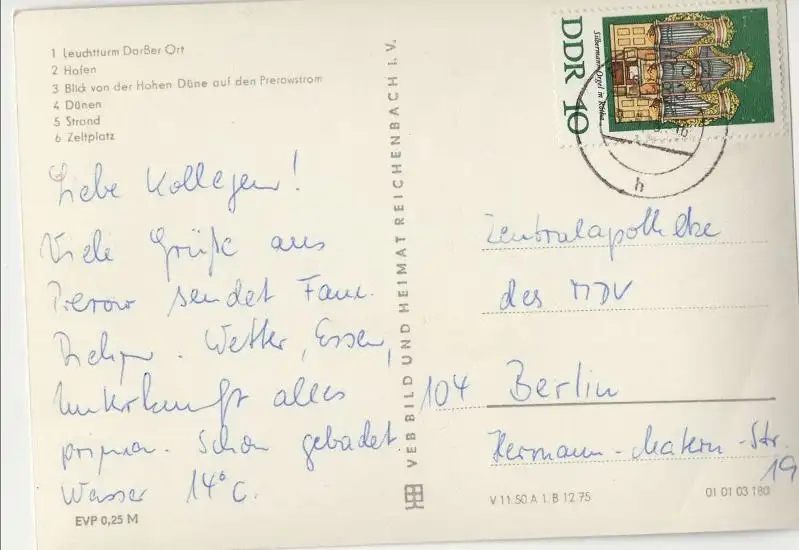 1 Leuchtturm Darßer Ort
2 Hafen
3 Blick von der Hohen Düne auf den Prerowstrom
4 Dünen
5 Strand
6 Zeltplatz
Liebe Kollegen!
Viele Grüße aus
Prerow sendet Fam.
Wetter, Essen,
Unterkunft alles
prima. Schon gebadet
Wasser 14°C.
EVP 0,25 M
VEB BILD UND HEIMAT REICHENBACH I. V.
DDR 10
Silbermann-Orgel in Rötha
h
Zentralapotheke
des MDV
104 Berlin
Hermann-Matern-Str.
19
V 11.50 A 1. B 12 75
01 01 03 180